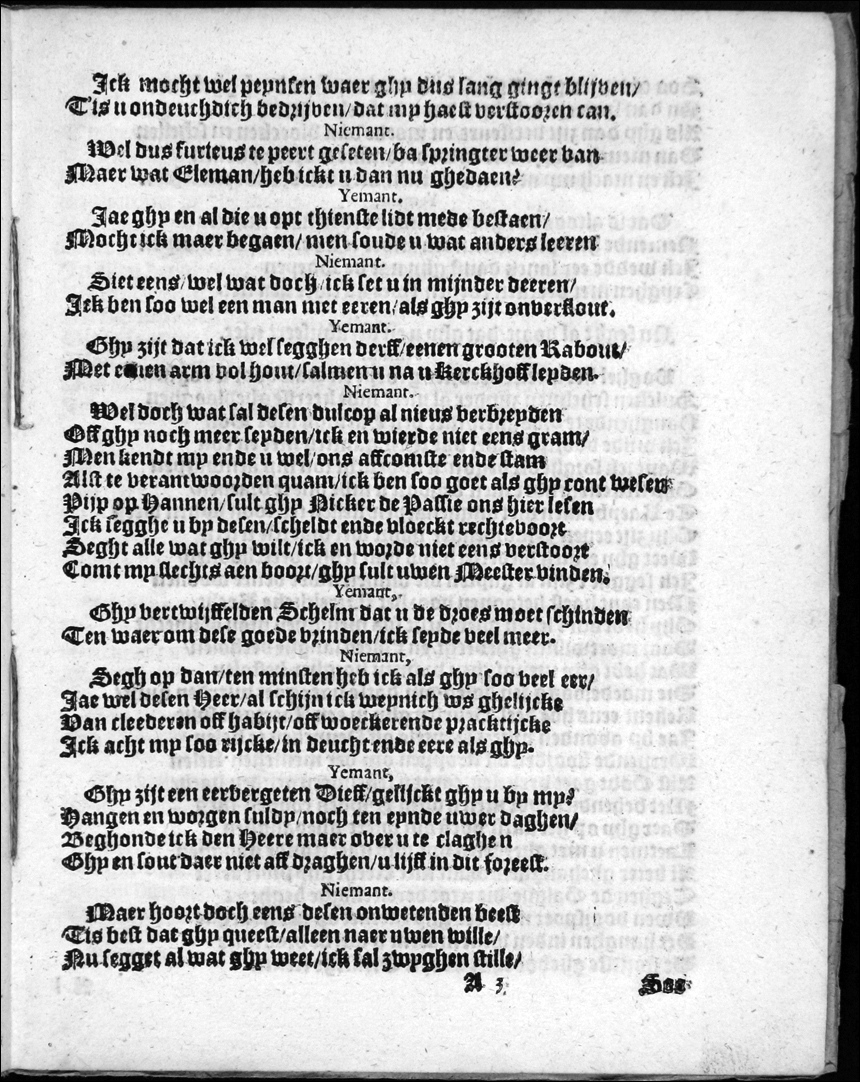 Ick mocht wel peynsen waer ghy dus lang gingt blijven/
T'is u ondeuchdich bedrijven/dat my haest verstooren can.
Niemant.
Wel dus furieus te peert geseten/ba springter weer van
Maer wat Eleman/heb ickt u dan nu ghedaen?
Yemant.
Jae ghy en al die u opt thienste lidt mede bestaen/
Mocht ick maer begaen/men soude u wat anders leeren
Niemant.
Siet eens/wel wat doch/ick set u in mijnder deeren/
Ick ben soo wel een man met eeren/als ghy zijt onverflout.
Yemant.
Ghy zijt dat ick wel segghen derff/eenen grooten Rabout/
Met eenen arm vol hout/salmen u na u Kerckhoff leyden.
Niemant.
Wel doch wat sal desen dulcop al nieus verbreyden
Off ghy noch meer seyden/ick en wierde niet eens gram/
Men kendt my ende u wel/ons affcomste ende stam
Alst te verantwoorden quam/ick ben soo goet als ghy cont wesen
Pijp op Hannen/sult ghy Nicker de Passie ons hier lesen
Ick segghe u by desen/scheldt ende vloeckt rechtevoort
Seght alle wat ghy wilt/ick en worde niet eens verstoort
Comt my slechts aen boort/ghy sult uwen Meester vinden.
Yemant,
Ghy vertwijffelden Schelm dat u de droes moet schinden
Ten waer om dese goede vrinden/ick seyde veel meer.
Niemant,
Segh op dan/ten minsten heb ick als ghy soo veel eer/
Jae wel desen Heer/al schijn ick weynich ws ghelijcke
Van cleederen off habijt/off woeckerende practijcke
Ick acht my soo rijcke/in deucht ende eere als ghy.
Yemant,
Ghy zijt een eervergeten Dieff/gelijckt ghy u by my?
Hangen en worgen suldy/noch ten eynde uwer daghen/
Beghonde ick den Heere maer over u te claghen
Ghy en sout daer niet aff draghen/u lijff in dit foreest.
Niemant.
Maer hoort doch eens desen onwetenden beest
Tis best dat ghy queest/alleen naer uwen wille/
Nu segget al wat ghy weet/ick sal zwyghen stille/
A 3